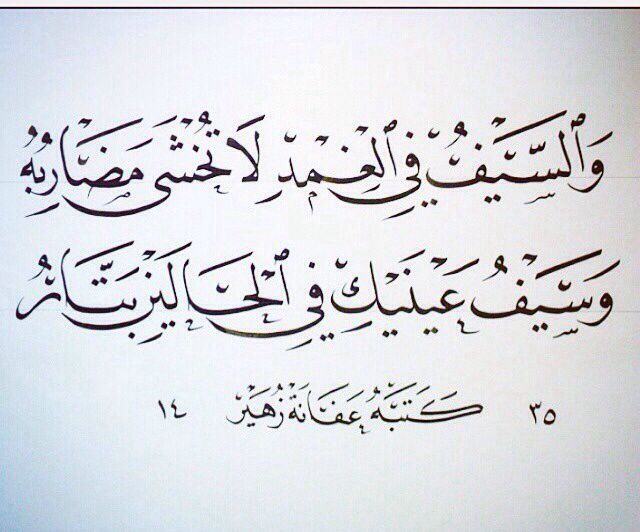 وَٱلسَّيْفُ فِي ٱلْغِمْدِ لَا تُخْشَى مَضَارِبُهُ
وَسَيْفُ عَيْنَيْكِ فِي ٱلْحَالَيْنِ بَتَّارُ
٣٥ كَتَبَهُ عَفَانَة زُهَيْر ١٤